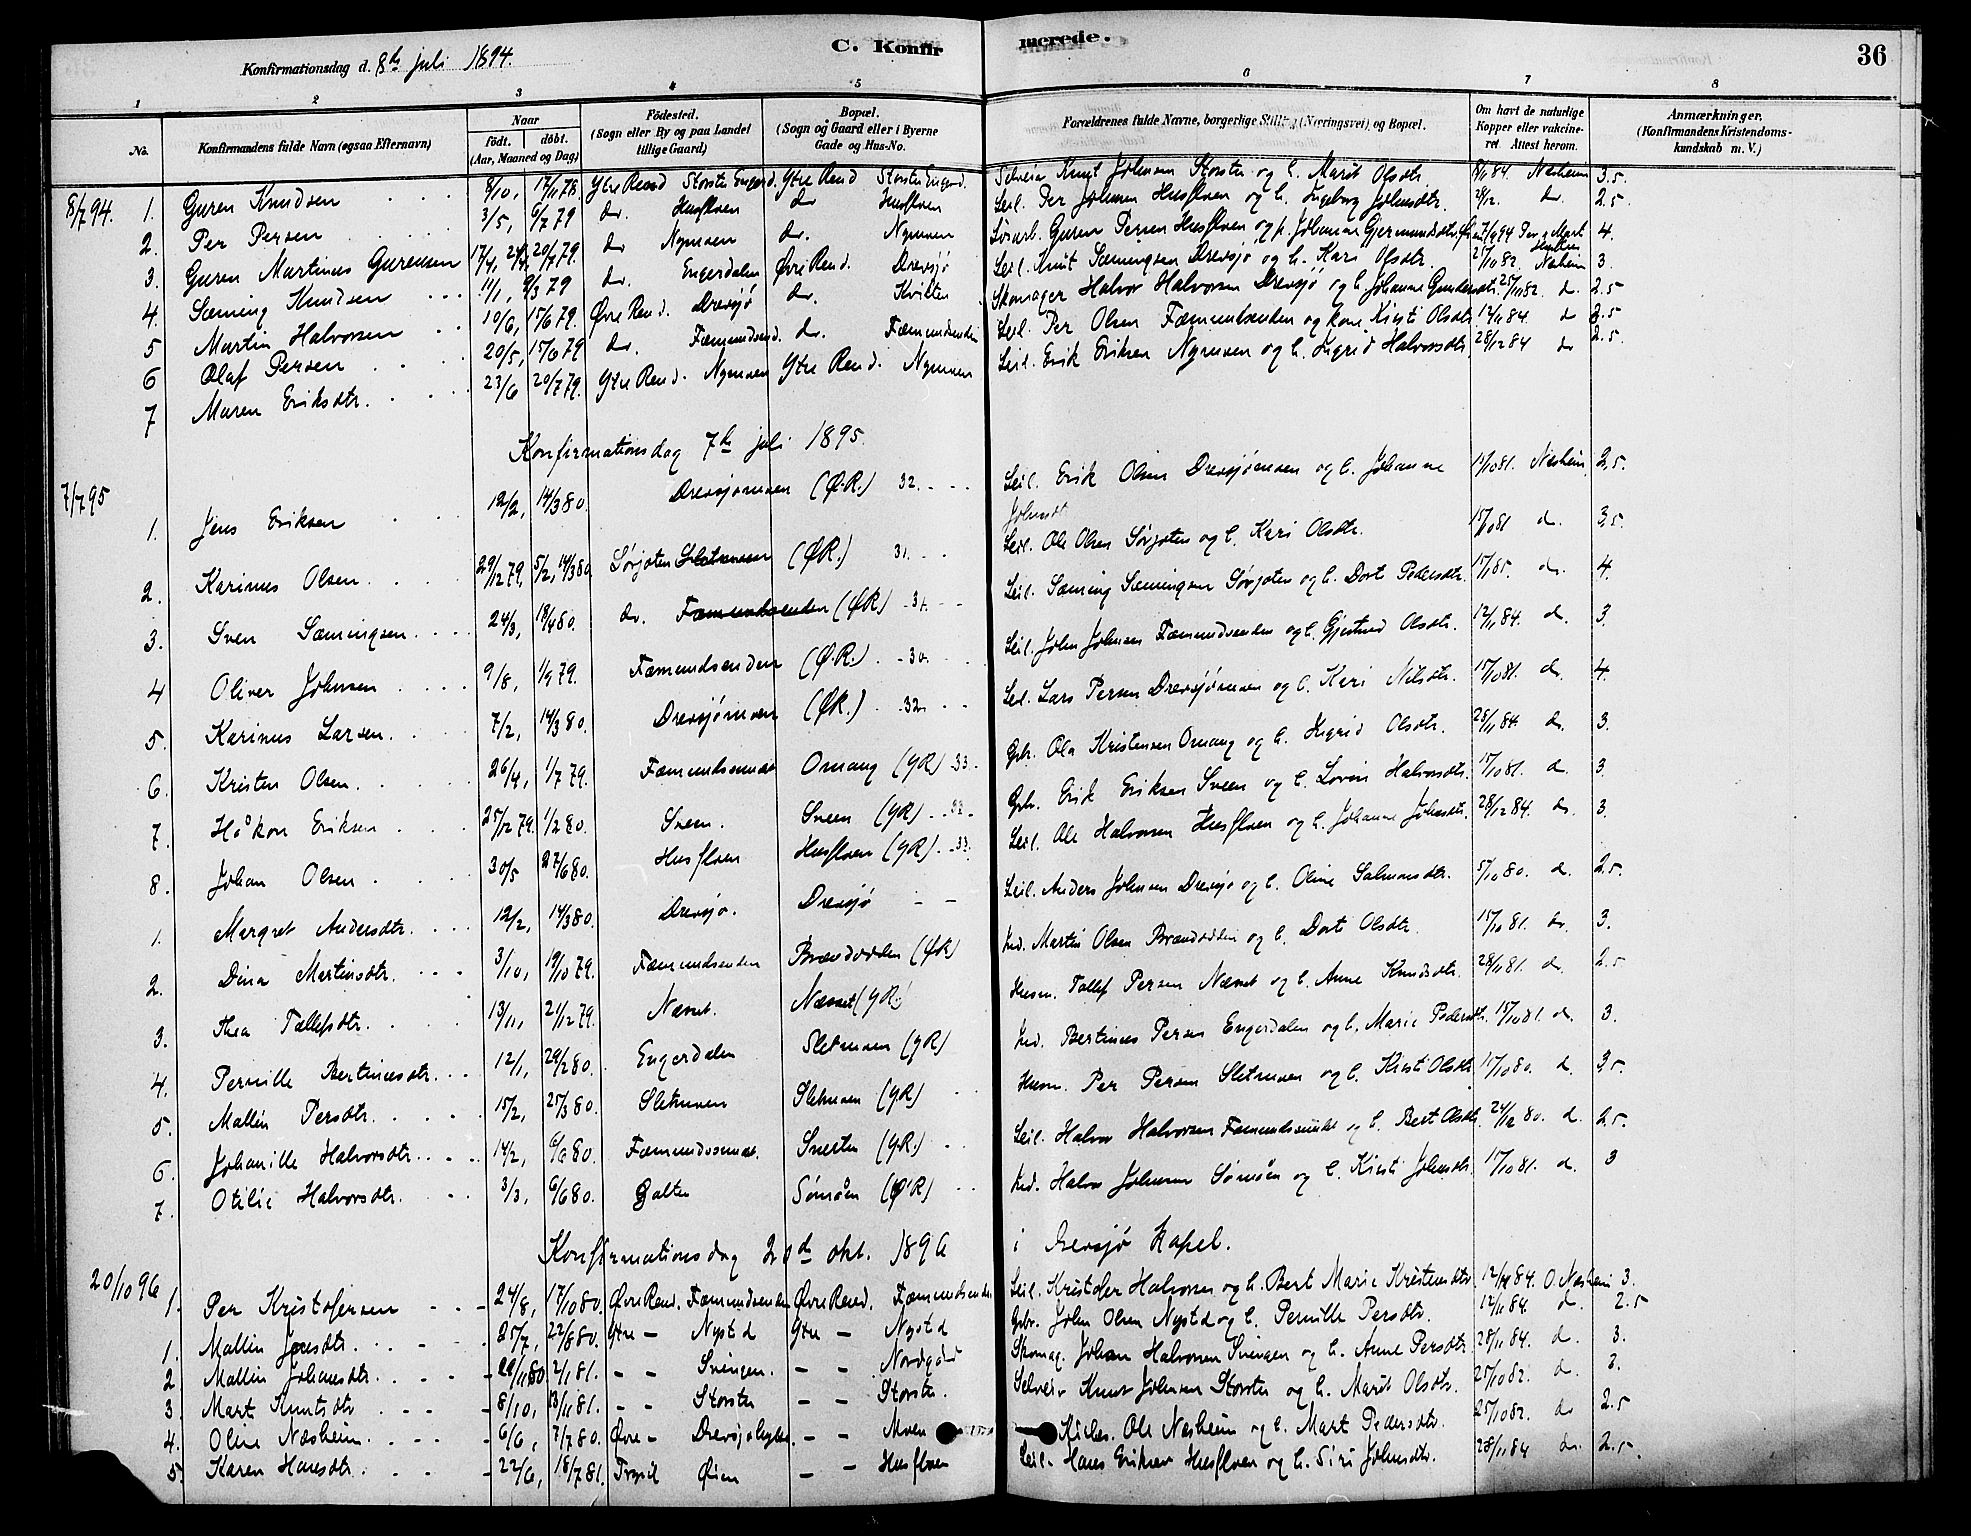 C. Konfirmerede.
36
Konfirmationsdag d. 8de juli 1894.
1 2 3 4 5 6 7 8
No. Konfirmandens fulde Navn (ogsaa Efternavn) Naar født. døbt. (Aar, Maaned og Dag) Fødested. (Sogn eller By og paa Landet tillige Gaard) Bopæl. (Sogn og Gaard eller i Byerne Gade og Hus-No. Forældrenes fulde Navne, borgerlige Stilling (Næringsvei) og Bopæl. Om havt de naturlige Kopper eller vakcineret. Attest herom. Anmærkninger. (Konfirmandens Kristendomskundskab m. V.)
8/7 94. 1. Guren Knudsen 8/10, 17/11 78. Ytre Rend Storsten Engerd. Ytre Rend Storsten Engerd. Selveier Knut Johnsen Storsten og h. Marit Olsdtr. 84 Næsheim 3.5.
2. Per Persen 3/5, 6/7 79 do. Husfloen do Husfloen Leil. Per Johnsen Husfloen og h. Ingeborg Johnsdtr. 28/12. do. 2.5.
3. Guren Martinus Gurensen 17/4, 20/7 79. do Nymoen do. Nymoen Løsarb. Guren Persen Husfloen og p. Johanne Gjermundsdtr. 94 4.
4. Sæming Knudsen 11/1, 9/3 79 do. Engerdalen Øvre Rend. Drevsjø Leil. Knut Sæmingsen Drevsjø og h. Kari Olsdtr. 25/10 82. Næsheim 3.
5 Martin Halvorsen 10/6, 15/6 79. Øvre Rend. Drevsjø do. Kvilten Skomager Halvor Halvorsen Drevsjø og h. Johanne Gundersdtr. 25/10 82. do. 2.5
6 Olaf Persen 20/5, 15/6 79 do. Fæmundsend. do. Fæmundsenden Leil. Per Olsen Fæmundsenden og kone Kirsti Olsdtr. 12/11 84. do 3.5
7 Maren Eriksdtr. 23/6 20/7 79. Ytre Rend. Nymoen Ytre Rend. Nymoen Leil. Erik Eriksen Nymoen og h. Ingrid Halvorsdtr. 28/12 84 do 2.5.
Konfirmationsdag 7de juli 1895.
7/7 95
1. Jens Eriksen 12/2, 14/3 80. Drevsjømoen (Ø.R.) 32. Leil. Erik Olsen Drevsjømoen og h. Johanne Johnsdt. 15/10 81. Næsheim 2.5.
2. Karinus Olsen 29/12 79, 5/2, 14/3 80 Sørjoten Sletmoen (ØR.) 31. Leil. Ole Olsen Sørjoten og h. Kari Olsdtr. 15/10 81 do. 3.5.
3. Sven Sæmingsen 24/3, 18/4 80. do. Fæmundsenden (ØR) 31. Leil. Sæming Sæmingsen Sørjoten og h. Dort Pedersdtr. 85. do. 4.
4 Oliver Johnsen 9/8, 1/9 79. Fæmundsenden (Ø.R.) 30. Leil. John Johnsen Fæmundsenden og h. Gjertrud Olsdtr. 12/11 84. do. 3.
5. Karinus Larsen 7/2, 14/3 80. Drevsjømoen (ØR.) 32. Leil. Lars Persen Drevsjømoen og h. Kari Nilsdtr. 15/10 81. do. 4.
6. Kristen Olsen 26/4, 1/7 79. Fæmundsundet Omang (YR) 33. Gbr. Ola Kristensen Omang og h. Ingrid Olsdtr. 28/11 84. do. 3
7. Håkon Eriksen 25/12 79. 1/2 80. Sveen. Sveen (YR) 33. Gbr. Erik Eriksen Sveen og h. Lovise Halvorsdtr. 15/10 81. d. 3.
8. Johan Olsen 30/5 27/6 80. Husfloen Husfloen (YR) 33. Leil. Ole Halvorsen Husfloen og h. Johanne Johnsdtr. 28/12 84. do. 3
1. Margret Andersdtr. 12/2, 14/3 80. Drevsjø. Drevsjø Leil. Anders Johnsen Drevsjø og h. Oline Salmonsdtr. 5/10 80. d. 2.5.
2. Dina Martinsdtr. 3/10, 19/10 79. Fæmundsenden Brændodden (ØR) Ind. Martin Olsen Brændodden og h. Dort Olsdtr. 15/10 81. do 3.
3. Thea Tollefsdtr. 13/11, 21/12 79. Næsset. Næsset (YR.) Husm. Tollef Persen Næsset og h. Anne Knudsdtr. 28/11 81. d. 2.5
4. Pernille Bertinusdtr. 12/1, 29/2 80. Engerdalen Sletmoen (YR) Ind. Bertinus Persen Engerdalen og h. Marie Pedersdtr. 15/10 81. d. 3.
5. Mallin Persdtr. 15/2, 25/3 80. Sletmoen Sletmoen (YR) Husm. Per Persen Sletmoen og h. Kirsti Olsdtr. 11/10 80. d. 3.5.
6. Johanille Halvorsdtr. 14/2, 6/6 80. Fæmundssundet. Snerten (YR.) Leil. Halvor Halvorsen Fæmundssundet og h. Bert Olsdtr. 24/12 80. d. 2.5.
7. Otilie Halvorsdtr. 3/3, 6/6 80. Galten Sømåen (ØR) Ind. Halvor Johnsen Sømåen og h. Kirsti Johnsdtr. 15/10 81. d. 3
Konfirmationsdag 20de okt. 1896 i Drevsjø kapel.
20/10 96
1. Per Kristofersen 24/8, 17/10 80. Øvre Rend. Fæmundsenden Øvre Rend. Fæmundsenden Leil. Kristofer Halvorsen og h. Bert Marie Kristensdtr. 12/11 84. O. Næsheim 3.
1. Mallin Jonsdtr. 25/7, 22/8 80. Ytre – Nystd Ytre – Nystd Gbr. John Olsen Nystd og h. Pernille Persdtr. 12/11 84. d. 2.5
2 Mallin Johansdtr. 29/11 80 2/1 81. – – Svingen. – – Nordgård Skomag. Johan Halvorsen Svingen og h. Anne Persdtr. 28/11 84. d. 3.
3. Mart Knutsdtr 8/10, 13/11 81. – – Storsten – – Storsten. Selveier Knut Johnsen Storsten og h. Marit Olsdtr. 25/10 82. d. 3.
4. Oline Næsheim 6/6, 7/7 80. Øvre – Drevsjøhytten – – Moen Kirkes. Ole Næsheim og h. Mart Pedersdtr. 25/10 82. do 2.5
5. Karen Hansdtr. 22/6, 18/7 81. Trysil Øien – – Husfloen Leil. Hans Eriksen Husfloen og h. Siri Johnsdtr. 28/11 84 do. 2.5.